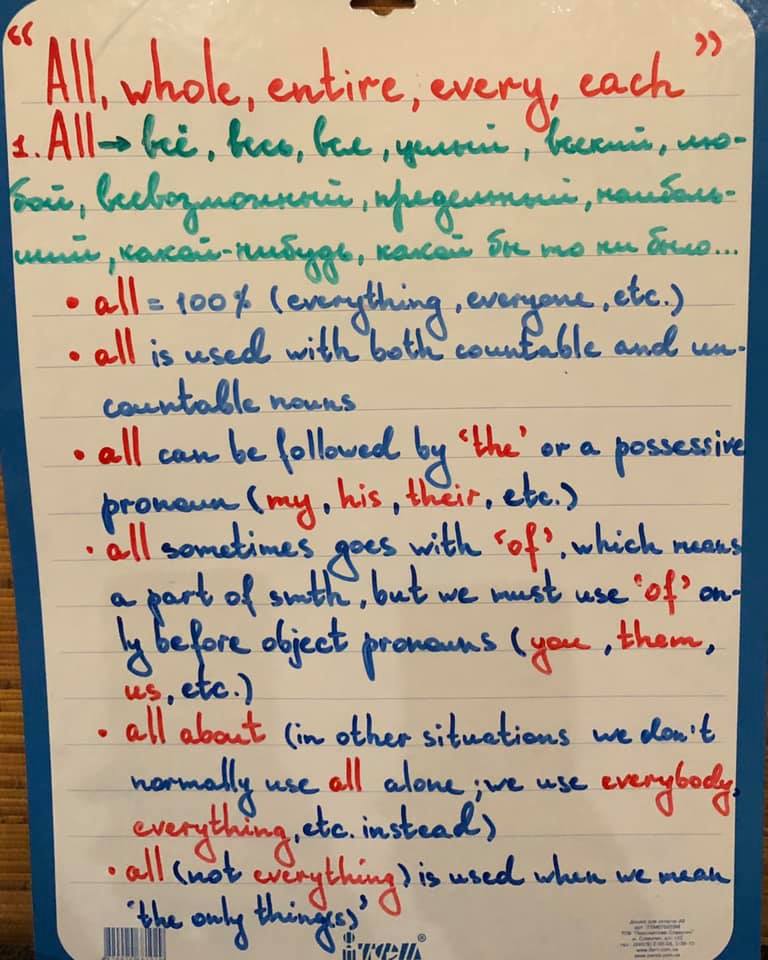 “All, whole, entire, every, each”
1. All → всё, весь, вся, целый, всякий, лю-
бой, всевозможный, предельный, наиболь-
ший, какой-нибудь, какой бы то ни было...
• all = 100% (everything, everyone, etc.)
• all is used with both countable and un-
countable nouns
• all can be followed by ‘the’ or a possessive
pronoun (my, his, their, etc.)
• all sometimes goes with ‘of’, which means
a part of smth, but we must use ‘of’ on-
ly before object pronouns (you, them,
us, etc.)
• all about (in other situations we don't
normally use all alone; we use everybody,
everything, etc. instead)
• all (not everything) is used when we mean
‘the only thing(s)’
iTEM®